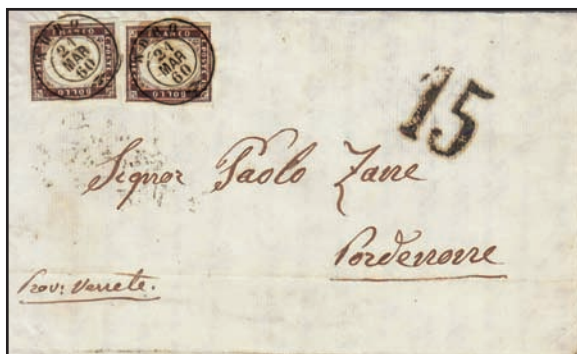 24
MAR
60
24
MAR
60
BOLLO
BOLLO
15
Signor Paolo Zarre
Pordenone
Prov: Venete.